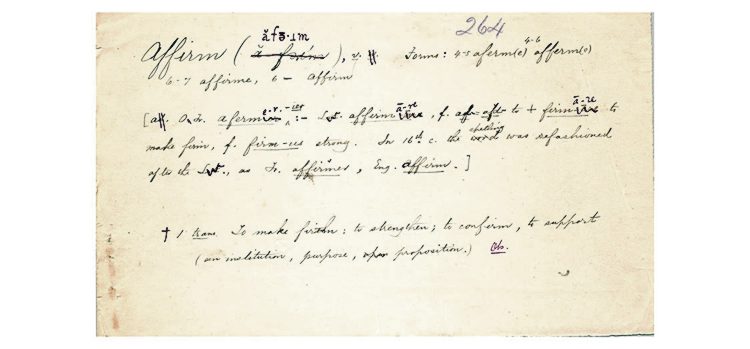 264
Affirm (ăfɜ̄·ɹm), v. Forms: 4-5 aferm(e) 4-6 afferm(e)
6-7 affirme, 6- Affirm
[a. O.Fr. aferme-r, -ier :- Lat. affirmā-re, f. af- = ad- to + firmā-re to
make firm, f. firm-us strong. In 16th c. the spelling was refashioned
after the Lat., as Fr. affirmer, Eng. affirm.]
† 1 trans. To make firm; to strengthen; to confirm, to support
(an institution, purpose, proposition.) Obs.